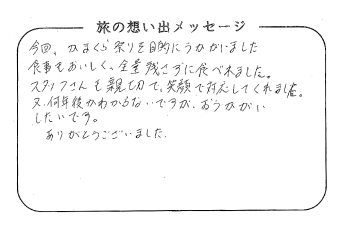 旅の想い出メッセージ
今回、かまくら祭りを目的にうかがいました
食事もおいしく、全量残さずに食べれました。
スタッフさんも親切で、笑顔で対応してくれました。
又、何年後かわからないですが、おうかがい
したいです。
ありがとうございました。